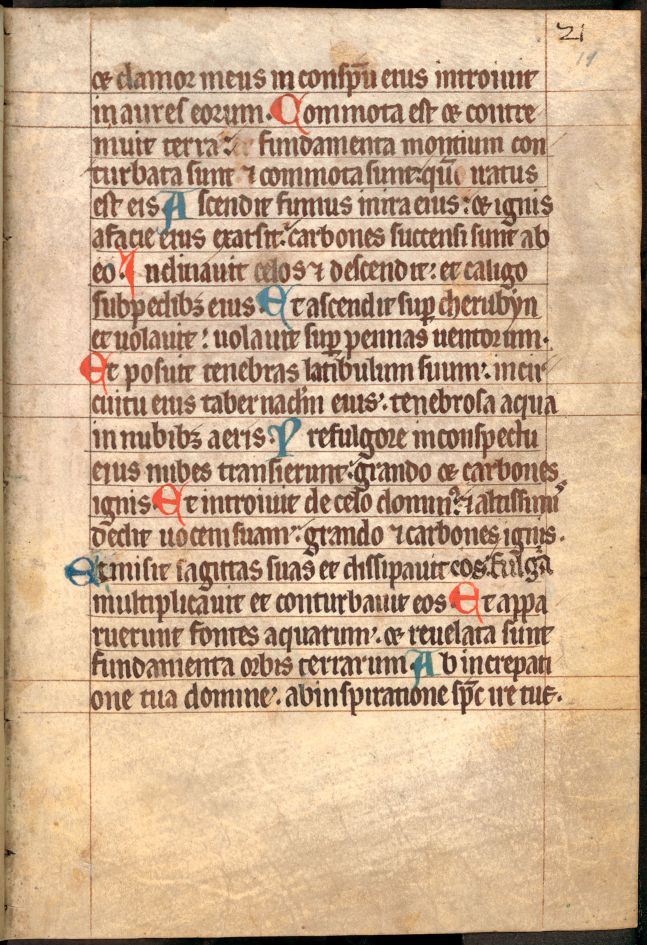 21
11
⁊ clamor meus in conspū eius introiuit
in aures eorum. Commota est ⁊ contre
muit terra: fundamenta montium con
turbata sunt ⁊ commota sunt: qm̄ iratus
est eis Ascendit fumus in ira eius: ⁊ ignis
afacie eius exarsit: carbones succensi sunt ab
eo. Inclinauit celos ⁊ descendit: et caligo
subpedibꝫ eius Et ascendit sup̄ cherubyn
et uolauit: uolauit sup̄ pennas uentorum.
Et posuit tenebras latibulum suum: incir
cuitu eius tabernaclm̄ eius: tenebrosa aqua
in nubibꝫ aeris: Prefulgore inconspectu
eius nubes transierunt: grando ⁊ carbones
ignis. Et intonuit de celo domin': ⁊ altissimus
dedit uocem suam: grando ⁊ carbones ignis.
Et misit sagittas suas et dissipauit eos: fulgᵃ
multiplicauit et conturbauit eos. Et appa
ruerunt fontes aquarum: ⁊ reuelata sunt
fundamenta orbis terrarum Ab increpati
one tua domine: abinspiratione spc̄ ire tue.